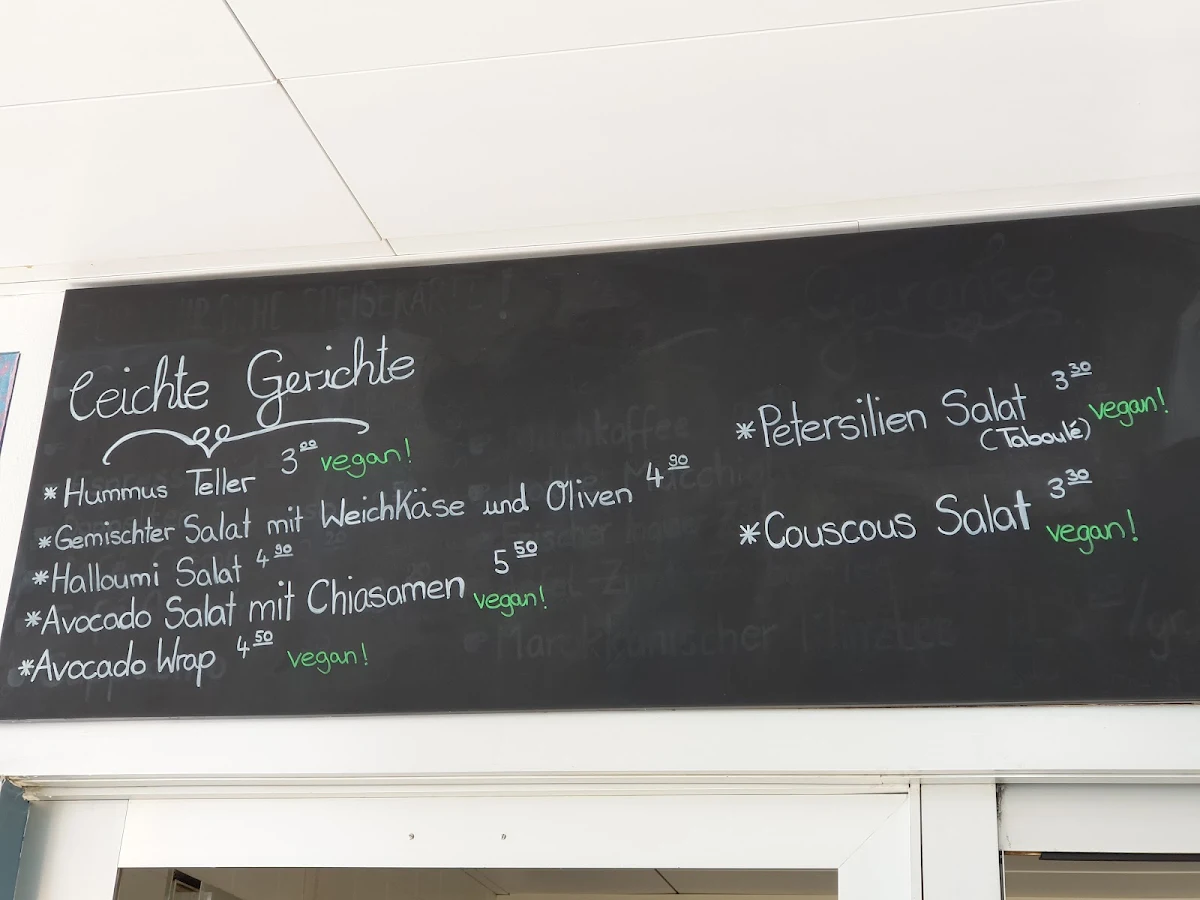 Leichte Gerichte
* Hummus Teller 3 00 vegan!
* Gemischter Salat mit WeichKäse und Oliven 4 90
* Halloumi Salat 4 90
* Avocado Salat mit Chiasamen 5 50 vegan!
* Avocado Wrap 4 50 vegan!
* Petersilien Salat 3 30 vegan!
(Taboulé)
* Couscous Salat 3 30 vegan!